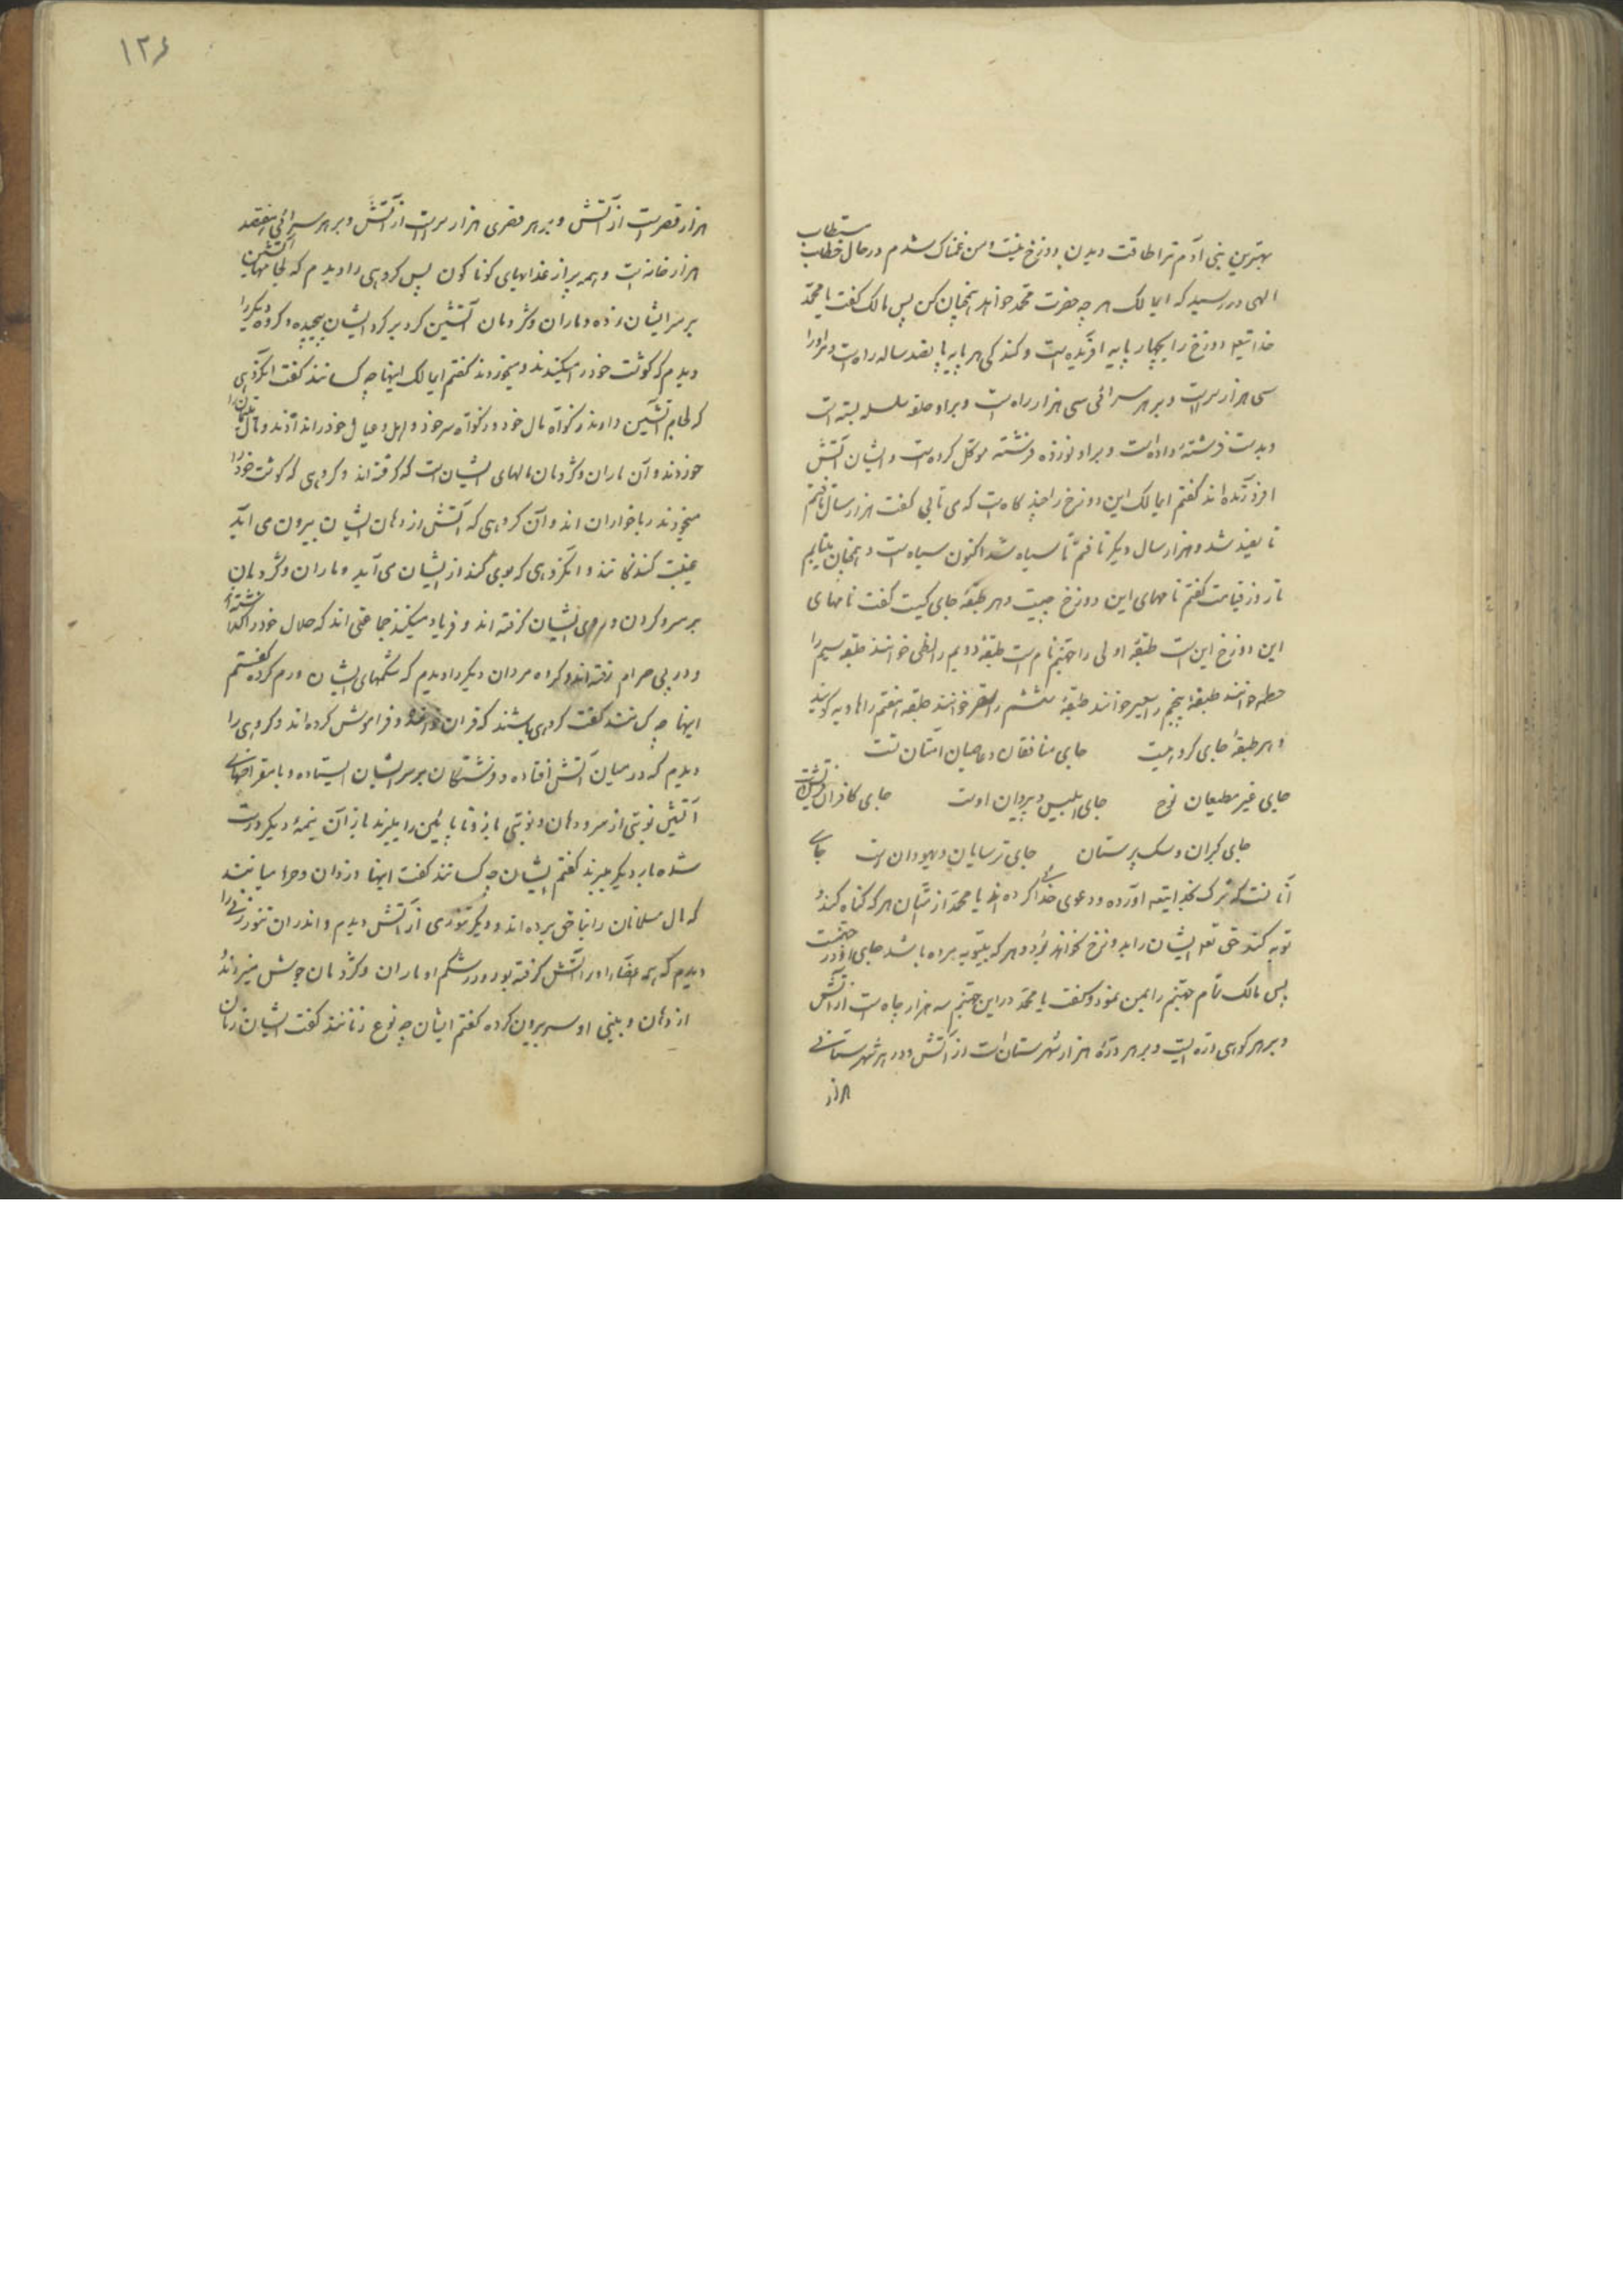 بهترین بنی آدم ترا طاقت دیدن دوزخ نیست و من غمناک شدم در حال خطاب مستطاب
الهی در رسید که ایمالک هر چه حضرت محمد خواهد همچنان کن پس مالک گفت یا محمد
خدایتعالی دوزخ را بچهار پایه آفریده است و کندگی هر پایه پانصد ساله راه است و مر اورا
سی هزار سر است و بر هر سرائی سی هزار راه است و بر او حلقه سلسله بسته است
و بدست فرشتۀ داده است و بر او نوزده فرشته موکل کرده است و ایشان آتش
افروزنده اند گفتم ایمالک این دوزخ را چند گاه است که می تابی گفت هزار سال تافتم
تا سفید شد و هزار سال دیگر تافتم تا سیاه شد اکنون سیاه است و همچنان بتابم
تا روز قیامت گفتم نامهای این دوزخ چیست و هر طبقۀ جای کیست گفت نامهای
این دوزخ این است طبقۀ اولی را جهنم نام است طبقۀ دویم را لظی خوانند طبقه سیم را
حطمه خوانند طبقۀ پنجم را سعیر خوانند طبقۀ ششم را سقر خوانند طبقه هفتم را هاویه گویند
و هر طبقۀ جای گروهیست جای منافقان و عاصیان امتان تست
جای غیر مطیعان نوح جای ابلیس و پیروان اوست جای کافران قریش است
جای گبران و سک پرستان جای ترسایان و یهودان است جای
آنانست که شرک بخدایتعالی آورده و دعوی خدائی کرده اند یا محمد از امتان هر که گناه کند و
توبه کند حق تعالی ایشان را بدوزخ نخواهد برد و هر که بیتوبه مرده باشد جای او در جهنمست
پس مالک تمام جهنم را بمن نمود و گفت یا محمد در این جهنم سه هزار چاه است از آتش
و بر هر کوهی دره ایست و بر هر درۀ هزار شهرستان است از آتش و در هر شهرستانی
هزار
۱۲۶
هزار قصر است از آتش و بر هر قصری هزار سر است از آتش و بر هر سرائی هفتصد
هزار خانه است و همه پر از عذابهای کوناکون پس گروهی را دیدم که لجامهای آتشین
بر سر ایشان زده و ماران و کژدمان آتشین گرد بر گرد ایشان پیچیده و گروه دیگر را
دیدم که گوشت خود را میکندند و میخوردند گفتم ایمالک اینها چه کسانند گفت انگروهی
که لجام آتشین دارند زکوة مال خود و زکوة سر خود و اهل و عیال خود را نداده اند و مال یتیمان را
خوردند و آن ماران و کژدمان مالهای ایشان است که گرفته اند و گروهی که گوشت خود را
میخوردند رباخواران اند و آن گروهی که آتش از دهان ایشان بیرون می آید
غیبت کنندکانند و انگروهی که بوی گند از ایشان می آید و ماران و کژدمان
بر سر و گردن و ... ایشان گرفته اند و فریاد میکنند جماعتی اند که حلال خود را گذاشته
و در پی حرام رفته اند و گروه مردان دیگر را دیدم که شکمهای ایشان ورم کرده گفتم
اینها چه کسانند گفت گروهی باشند که قران خوانده و فراموش کرده اند و گروهی را
دیدم که در میان آتش افتاده و فرشتکان بر سر ایشان ایستاده و با مقراضهای
آتشین نوبتی از سر و دهان و نوبتی بازو تا پائین را ببرند باز آن نیمۀ دیگر درست
شده بار دیگر میبرند گفتم ایشان چه کسانند گفت اینها دزدان و حرامیانند
که مال مسلمانان را بناحق برده اند و دیگر تنوری از آتش دیدم و اندر ان تنور زنی را
دیدم که همه اعضاء او را آتش گرفته بود و در شکم او ماران و کژدمان جوش میزدند و
از دهان و بینی او سر بیرون کرده گفتم ایشان چه نوع زنانند گفت ایشان زنان